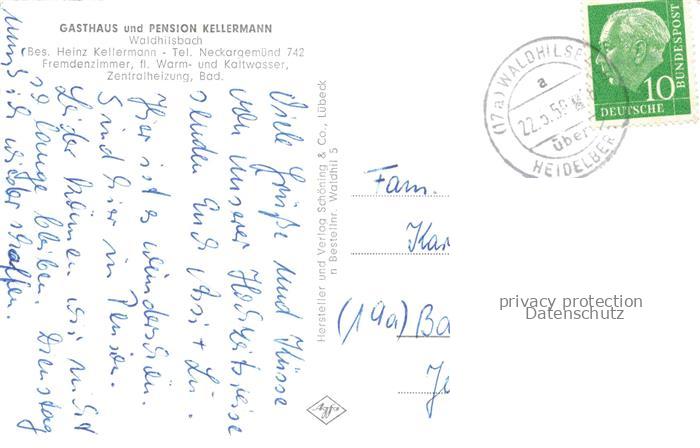 GASTHAUS und PENSION KELLERMANN
Waldhilsbach
Bes. Heinz Kellermann - Tel. Neckargemünd 742
Fremdenzimmer, fl. Warm- und Kaltwasser,
Zentralheizung, Bad.
Viele Grüße und Küsse
von unserer Hochzeitsreise
senden Euch
Hier ist es wunderschön.
Sind hier in Pension.
Leider können wir nicht
so lange bleiben. Dienstag
muß ich wieder schaffen.
Hersteller und Verlag Schöning & Co., Lübeck
n Bestellnr. Waldhil 5
(17a) WALDHILSB
a
22.5.59
über
HEIDELBER
10
DEUTSCHE
BUNDESPOST
Fam.
Kar
(14a) Ba
privacy protection
Datenschutz